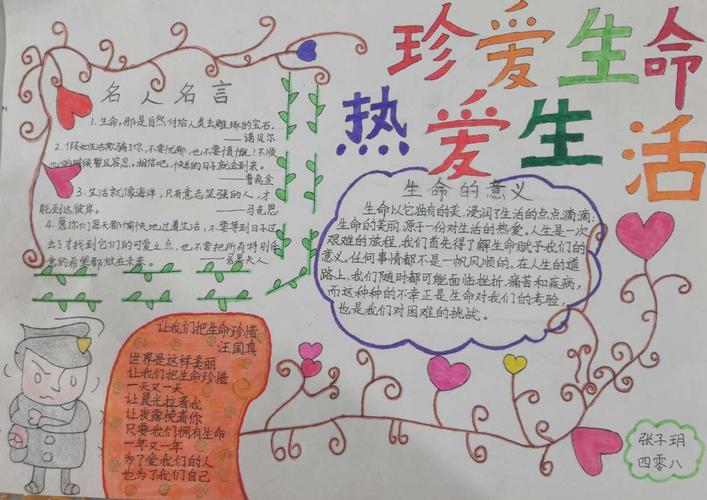 珍爱生命
热爱生活
名人名言
1.生命,那是自然付给人类去雕琢的宝石。
——诺贝尔
2.假如生活欺骗了你,不要忧郁,也不要愤慨!不顺
心的时候暂且容忍,相信吧,快乐的日子就会到来。
——普希金
3.生活就像海洋,只有意志坚强的人,才
能到达彼岸。
——马克思
4.愿你们每天都愉快地过着生活,不要等到日子过
去了才找到它们的可爱之点,也不要把所有特别合
意的希望都放在未来。
——居里夫人
生命的意义
生命以它独有的美,浸润了生活的点点滴滴;
生命的美丽,源于一份对生活的热爱。人生是一次
艰难的旅程,我们首先得了解生命赋予我们的
意义。任何事情都不是一帆风顺的。在人生的道
路上,我们随时都可能面临挫折、痛苦和疾病,
而这种种的不幸正是生命对我们的考验,
也是我们对困难的挑战。
让我们把生命珍惜
汪国真
世界是这样美丽
让我们把生命珍惜
一天又一天
让晨光拉着我
让夜露挽着你
只要我们拥有生命
一年又一年
为了爱我们的人
也为了我们自己
张子玥
四零八